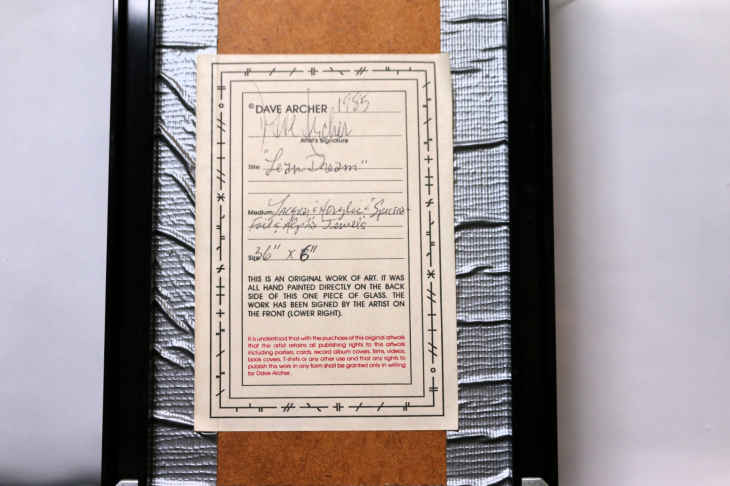 © DAVE ARCHER 1985
Dave Archer
Artist's Signature
Title "Lean Dream"
Medium Lacquer & Acrylic &
Foil &
Size 36" x 6"
THIS IS AN ORIGINAL WORK OF ART. IT WAS
ALL HAND PAINTED DIRECTLY ON THE BACK
SIDE OF THIS ONE PIECE OF GLASS. THE
WORK HAS BEEN SIGNED BY THE ARTIST ON
THE FRONT (LOWER RIGHT).
It is understood that with the purchase of this original artwork
that the artist retains all publishing rights to this artwork
including posters, cards, record album covers, films, videos,
book covers, T-shirts or any other use and that any rights to
publish this work in any form shall be granted only in writing
by Dave Archer.